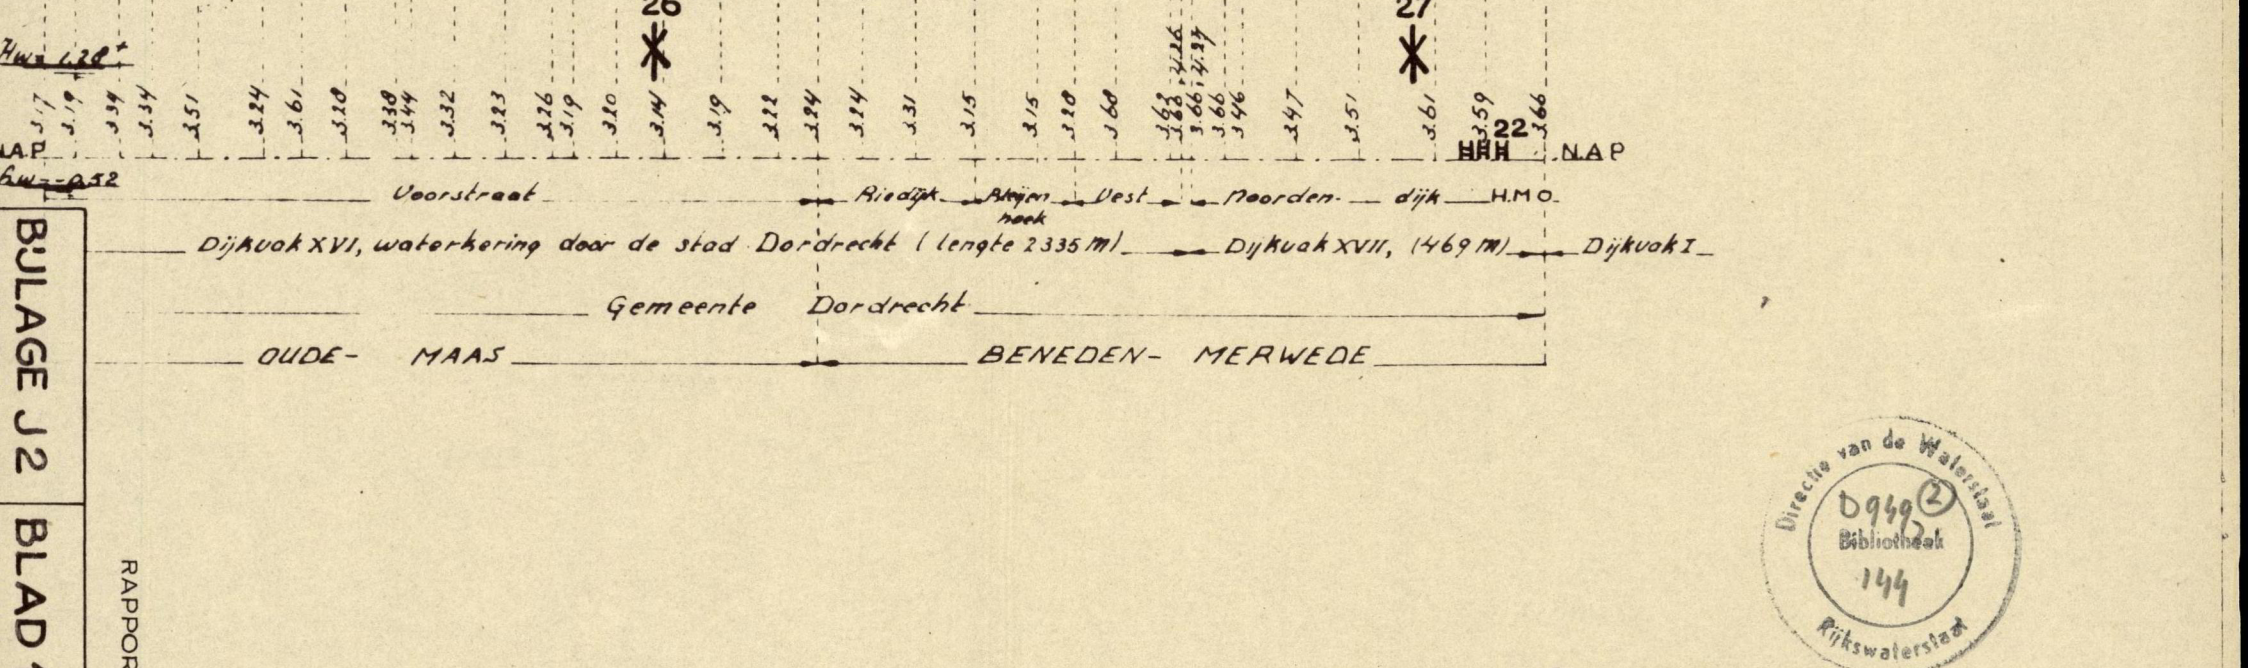 26 27
Hw= 1.28+
3.17 3.19 3.34 3.34 3.51 3.24 3.61 3.28 3.38 3.44 3.32 3.23 3.26 3.19 3.20 3.14 3.19 3.22 3.24 3.24 3.31 3.15 3.15 3.28 3.68 3.63 4.26 3.66; 4.27 3.66 3.46 3.47 3.51 3.61 3.59 3.66
22
N.A.P H H H N.A.P
Voorstraat Riedijk Vest Noorden- dijk H.M.O.
hoek
Dijkvak XVI, waterkering door de stad Dordrecht (lengte 2335 m) Dijkvak XVII, (469 m) Dijkvak I
Gemeente Dordrecht
OUDE- MAAS BENEDEN- MERWEDE
BIJLAGE J 2
BLAD
RAPPOR
Directie van de Waterstaat
D949 2
Bibliotheek
144
Rijkswaterstaat